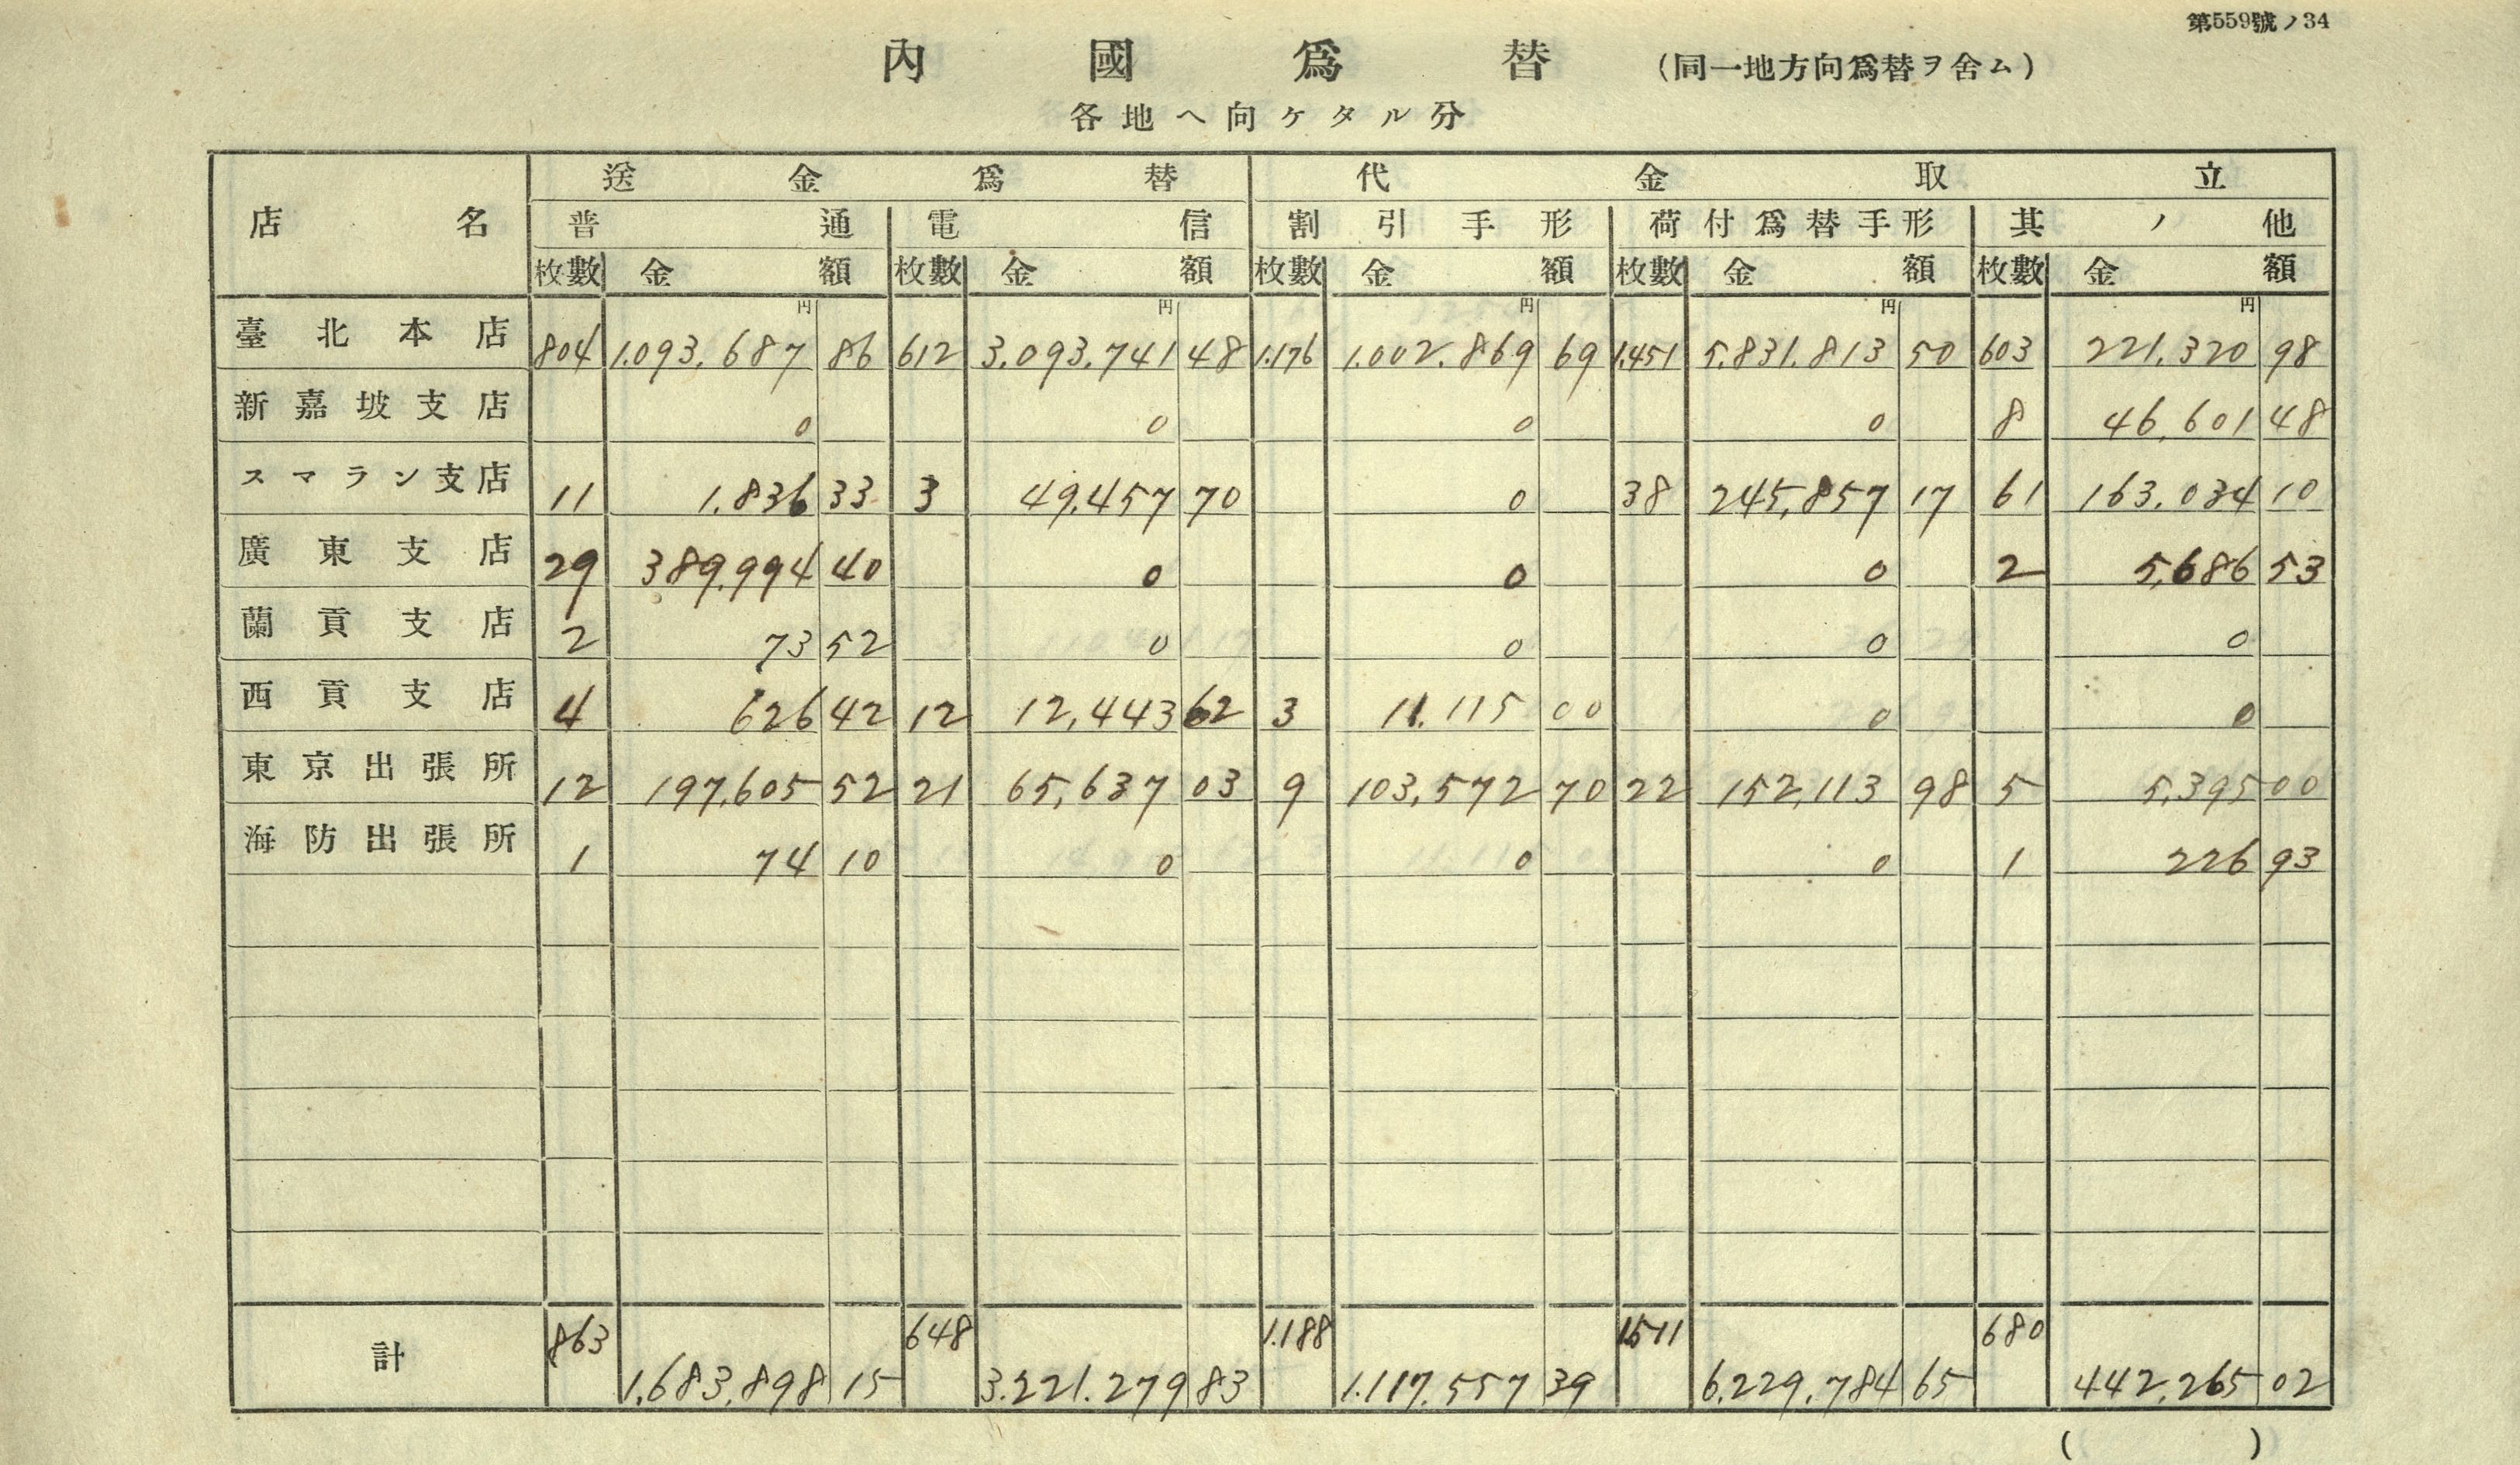 第559號ノ34
內國爲替 (同一地方向爲替ヲ含ム)
各地ヘ向ケタル分
店名 送金爲替 代金取立
普通 電信 割引手形 荷付爲替手形 其ノ他
枚數 金額 枚數 金額 枚數 金額 枚數 金額 枚數 金額
円 円 円 円 円
臺北本店 804 1.093.687 86 612 3.093.741 48 1.176 1.002.869 69 1.451 5.831.813 50 603 221.320 98
新嘉坡支店 0 0 0 0 8 46,601 48
スマラン支店 11 1.836 33 3 49.457 70 0 38 245,857 17 61 163.034 10
廣東支店 29 389.994 40 0 0 0 2 5,686 53
蘭貢支店 2 73 52 0 0 0 0
西貢支店 4 626 42 12 12,443 62 3 11.115 00 0 0
東京出張所 12 197,605 52 21 65,637 03 9 103,572 70 22 152,113 98 5 5,395 00
海防出張所 1 74 10 0 0 0 1 226 93
計 863 1,683,898 15 648 3.221.279 83 1.188 1.117.557 39 1511 6.229,784 65 680 442.265 02
( )